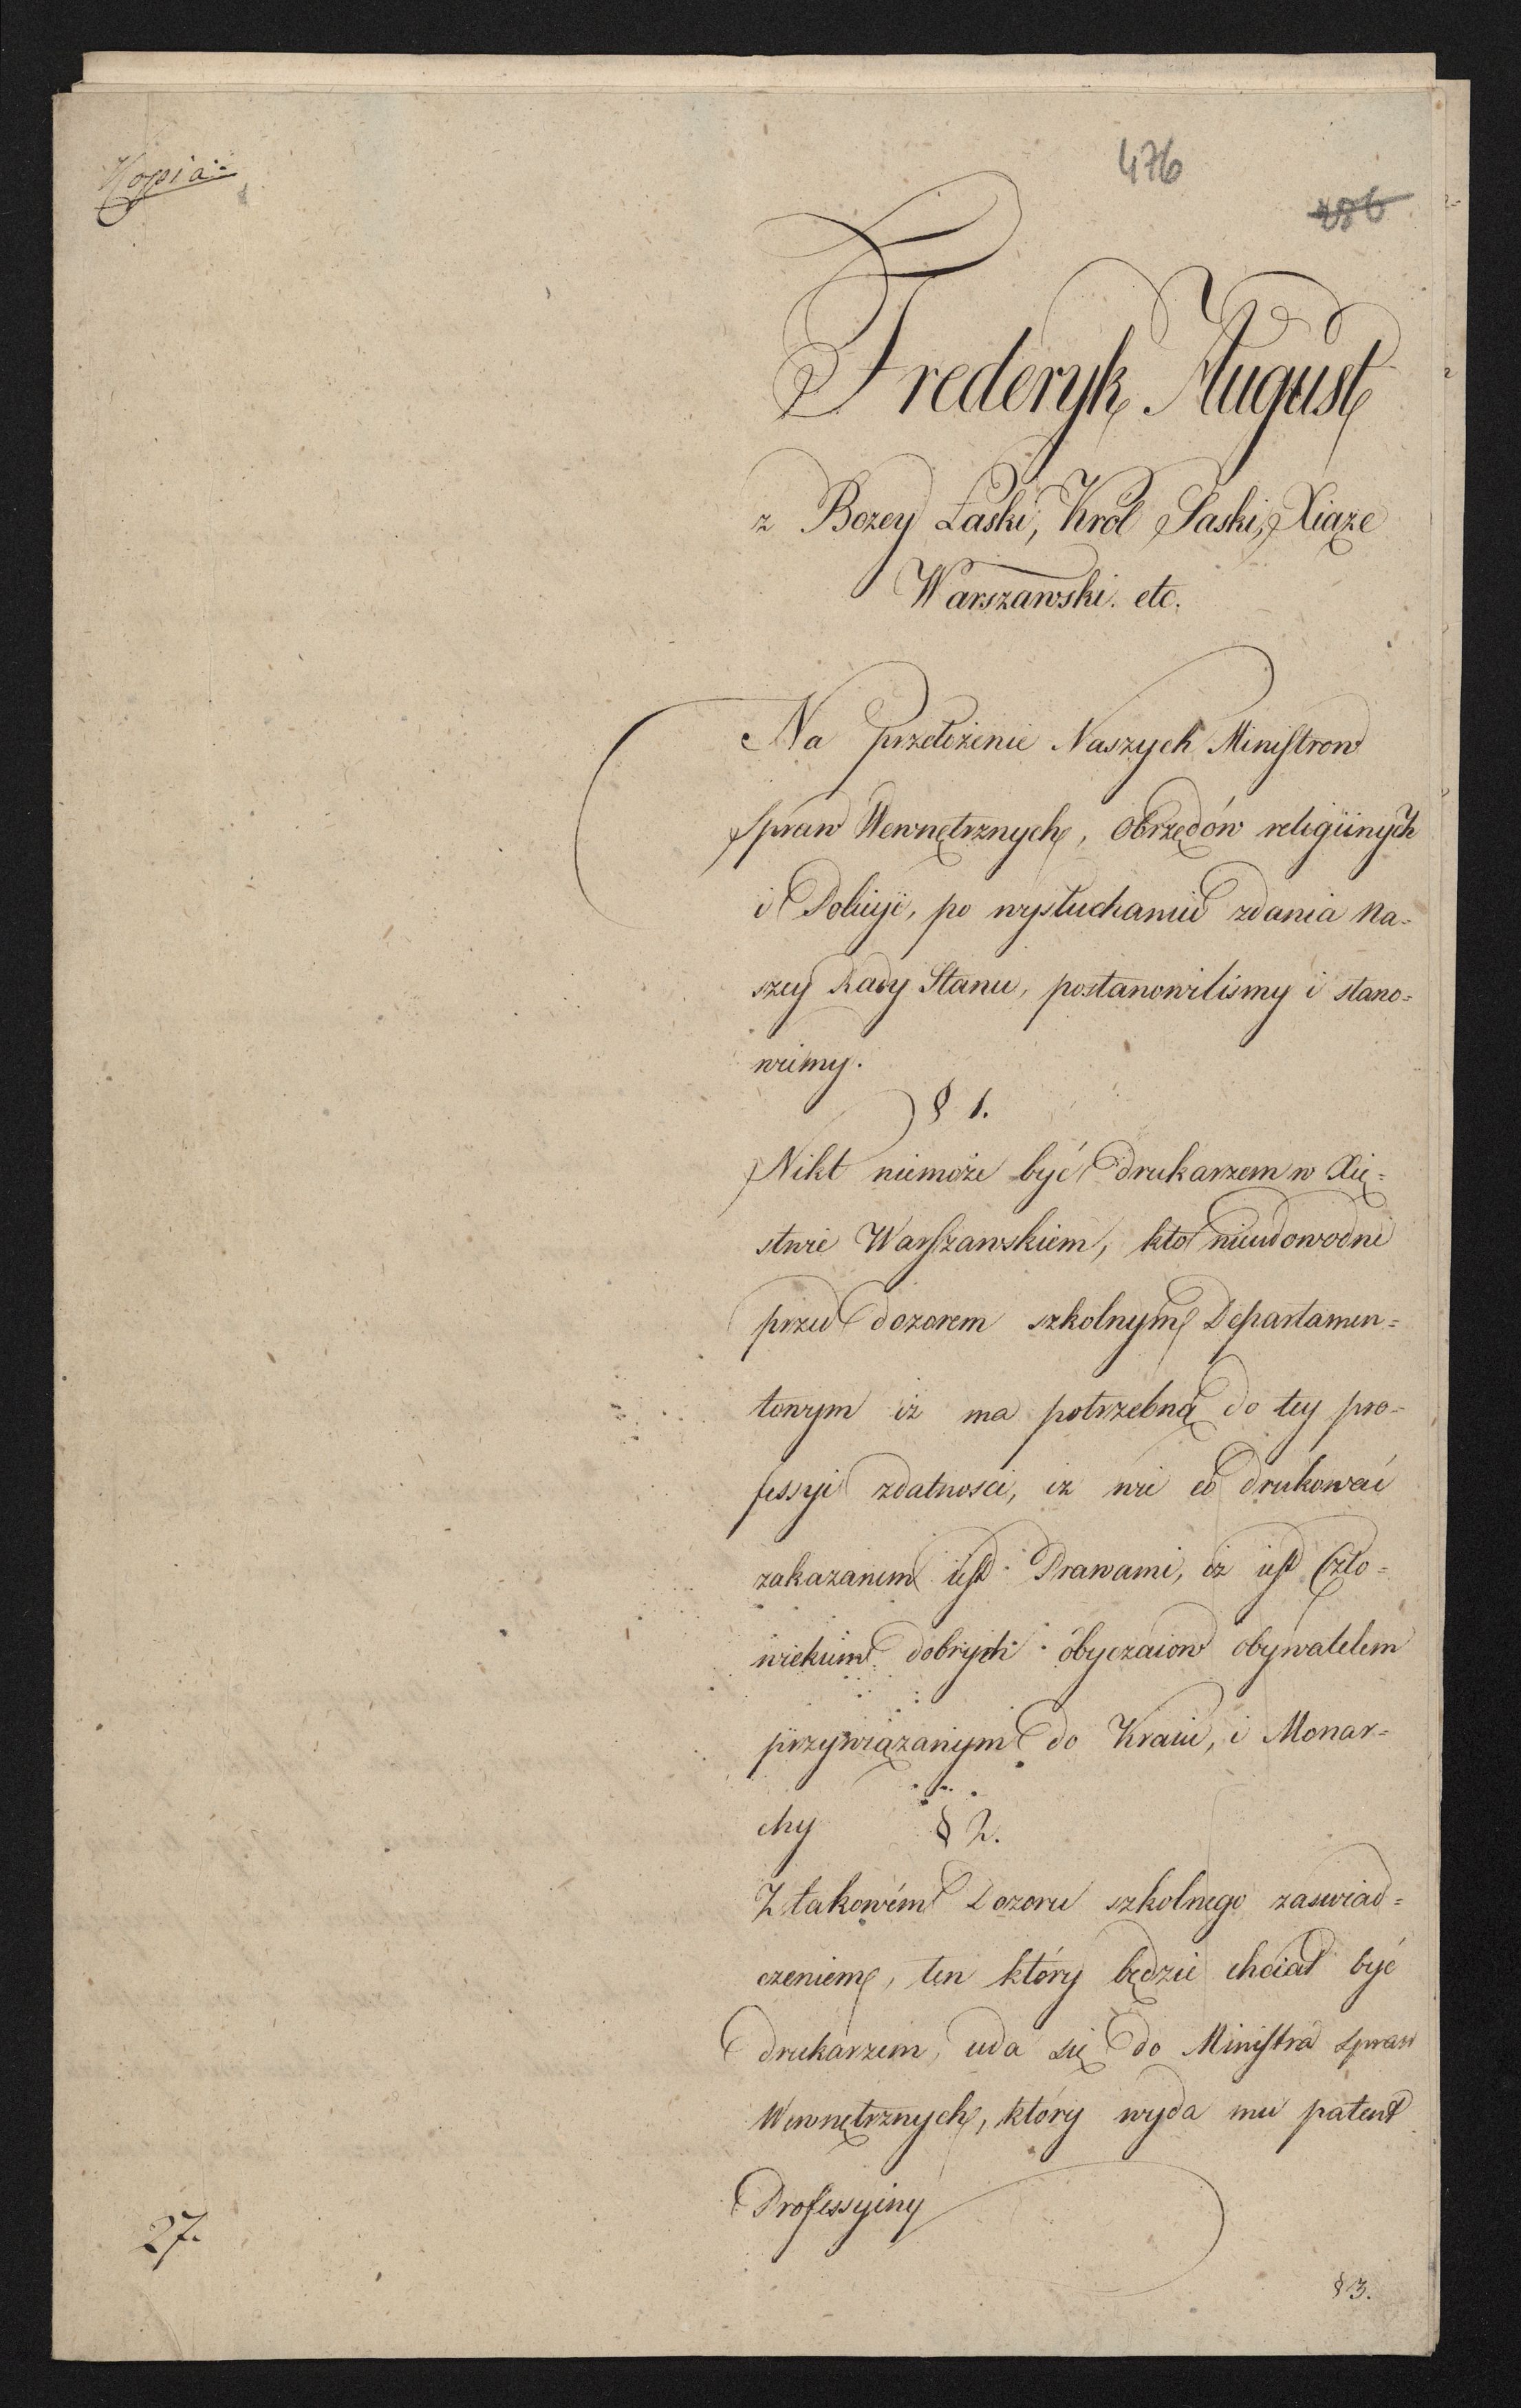 Kopia
476
286
Frederyk August
z Bozey Łaski, Krol Saski, Xiąze
Warszawski. etc.
Na przełożenie Naszych Ministrow
Spraw Wewnętrznych, Obrzędów religiinych
i Policyi, po wysłuchaniu zdania Na=
szey Rady Stanu, postanowilismy i stano=
wiemy.
§ 1.
Nikt niemoże być drukarzem w Xię=
stwie Warszawskiem, kto nieudowodni
przed dozorem szkolnym Departamen=
towym iz ma potrzebną do tey pro=
fessyi zdatnosci, iz wie co drukować
zakazanem iest Prawami, iz iest Czło=
wiekiem dobrych obyczaiow obywatelem
przywiązanym do Kraiu, i Monar=
chy
§ 2.
Z takowém Dozoru szkolnego zaswiad=
czeniem, ten który będzie chciał być
drukarzem, uda się do Ministra Spraw
Wewnętrznych, który wyda mu patent
Professyiny
27.
§ 3.